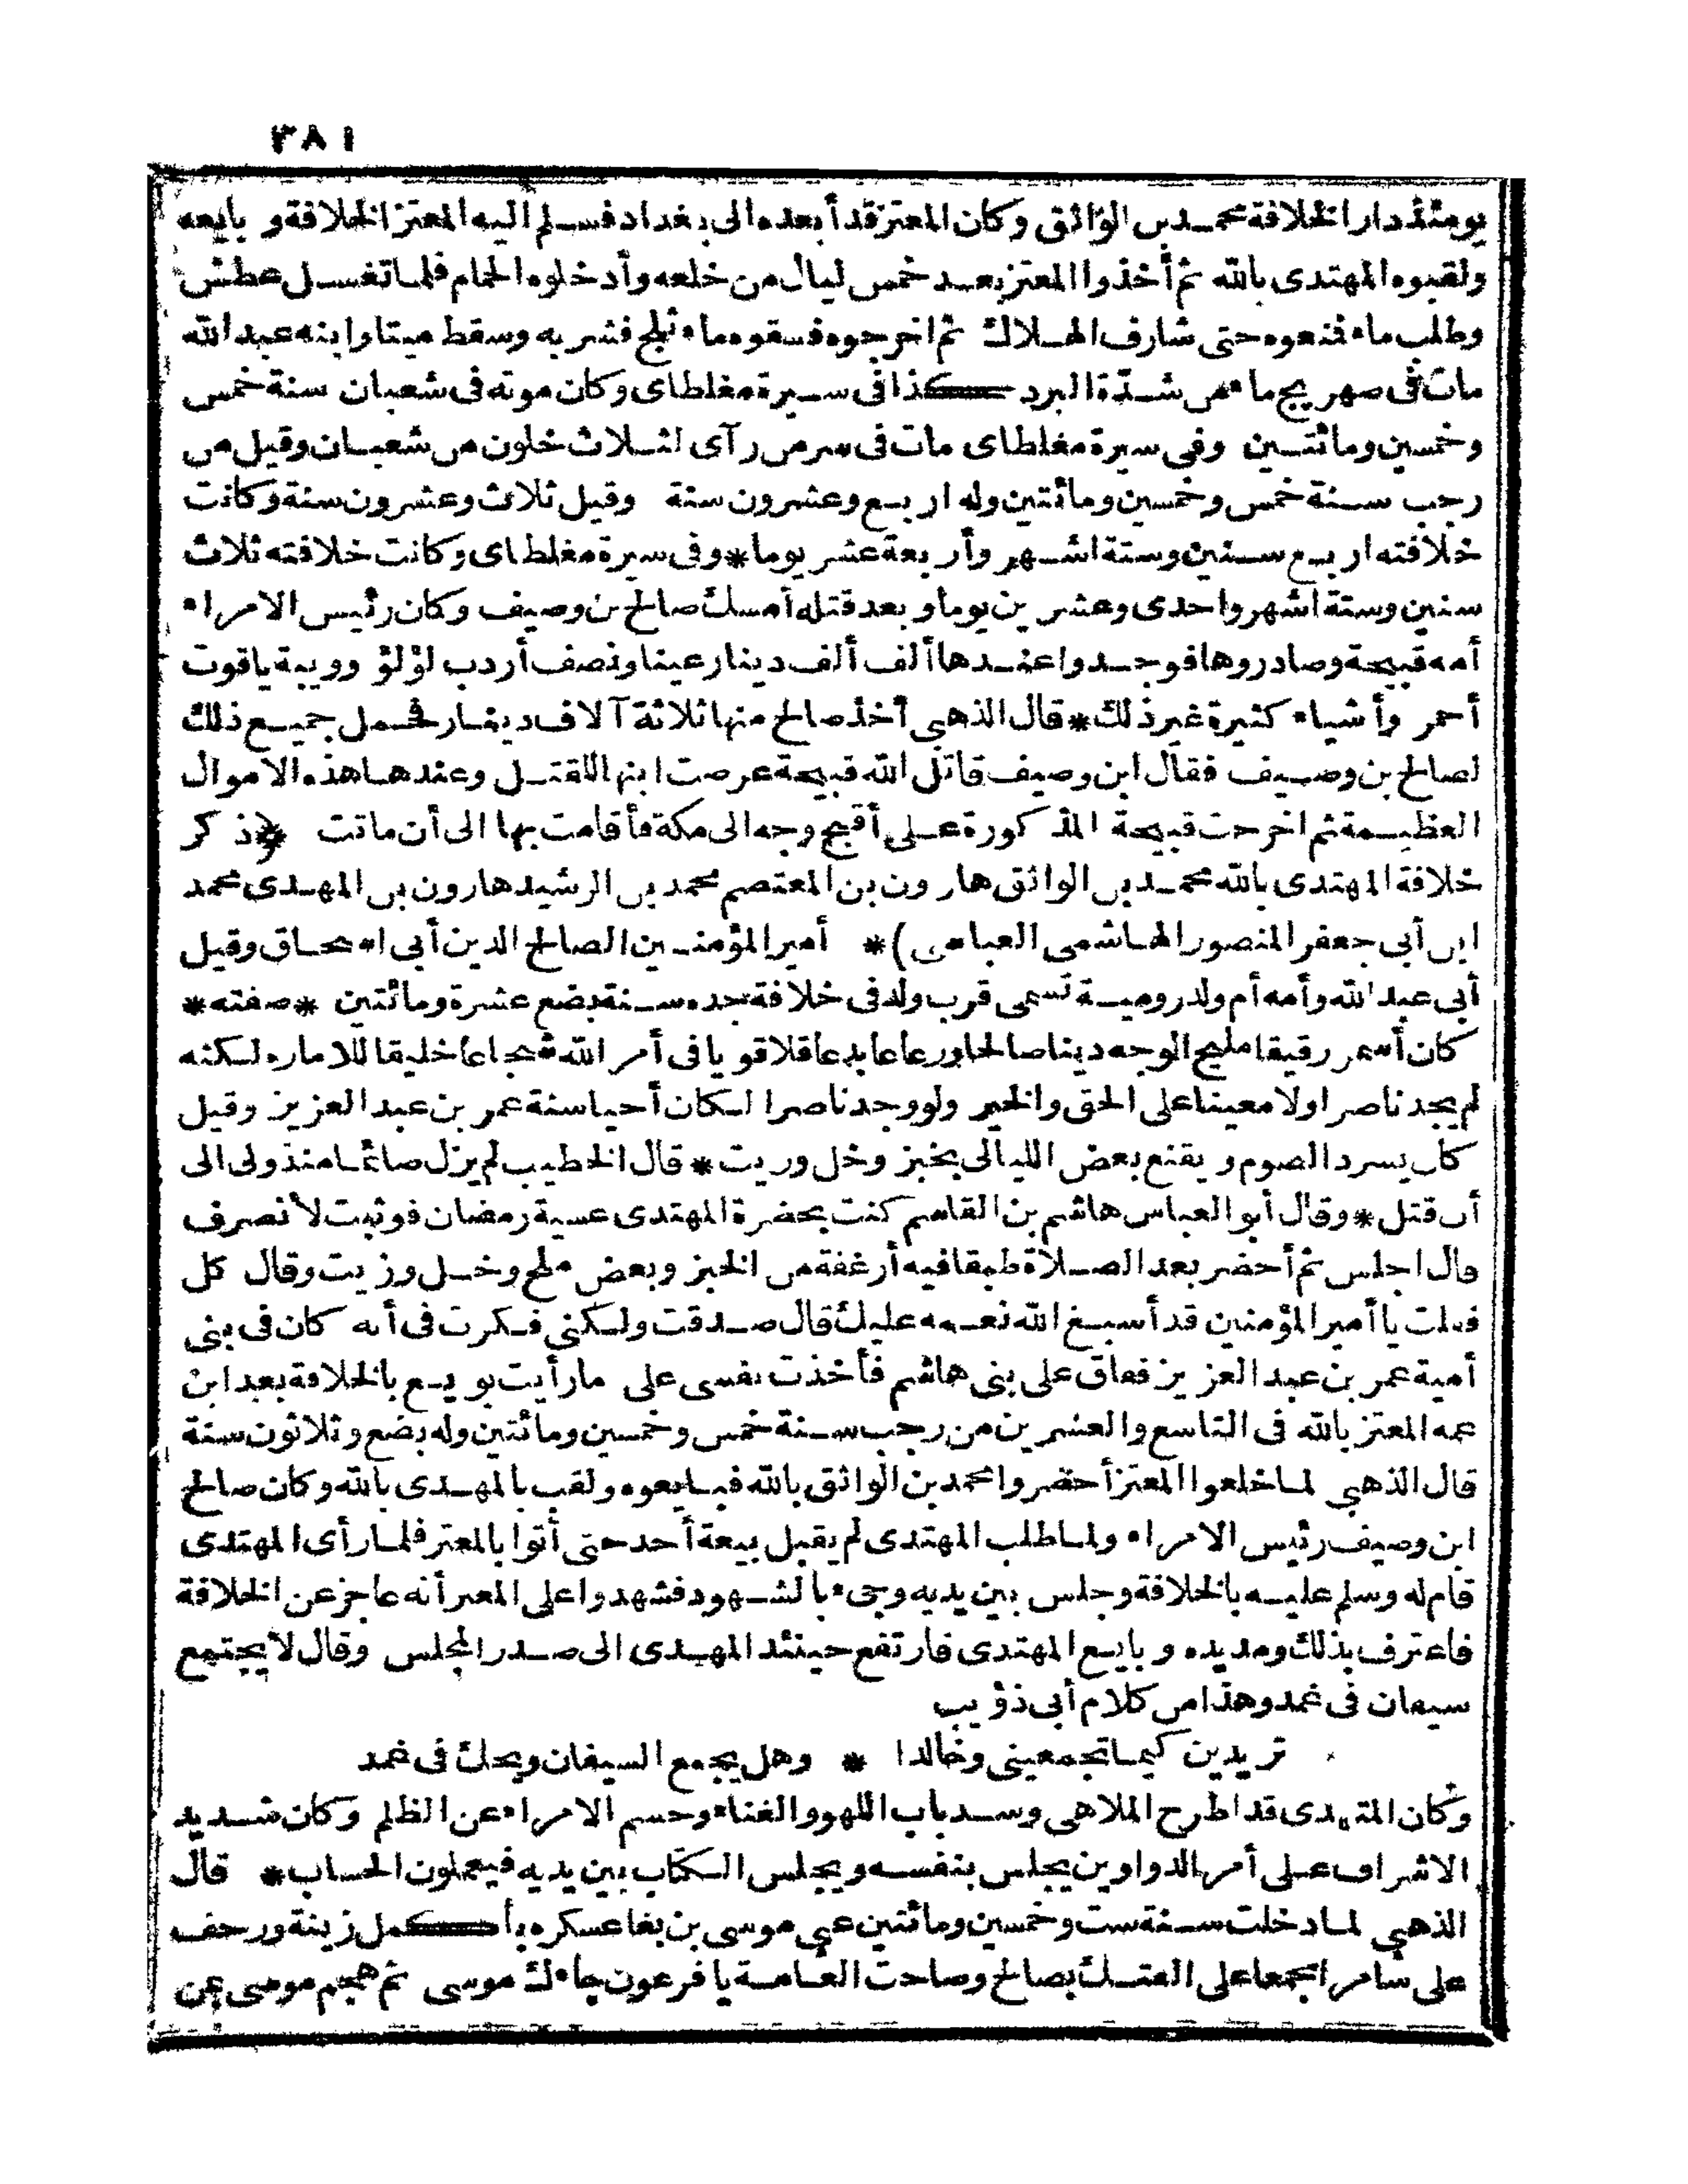 ٣٨١
يومئذ دار الخلافة محمد بن الواثق وكان المعتز قد أبعده الى بغداد فسلم اليه المعتز الخلافة و بايعه
ولقبوه المهتدى بالله ثم أخذوا المعتز بعد خمس ليال من خلعه وأدخلوه الحمام فلما تغسل عطش
وطلب ماء فمنعوه حتى شارف الهلاك ثم اخرجوه فسقوه ماء ثلج فشربه وسقط ميتا وابنه عبد الله
مات فى صهريج ماء من شدّة البرد كذا فى سيرة مغلطاى وكان موته فى شعبان سنة خمس
وخمسين ومائتين وفى سيرة مغلطاى مات فى سر من رآى لثلاث خلون من شعبان وقيل من
رجب سنة خمس وخمسين ومائتين وله اربع وعشرون سنة وقيل ثلاث وعشرون سنة وكانت
خلافته اربع سنين وستة اشهر وأربعة عشر يوما * وفى سيرة مغلطاى وكانت خلافته ثلاث
سنين وستة اشهر واحدى وعشرين يوما و بعد قتله أمسك صالح بن وصيف وكان رئيس الامراء
أمه قبيحة وصادروها فوجدوا عندها ألف ألف دينار عينا ونصف أردب لؤلؤ وويبة ياقوت
أحمر وأشياء كثيرة غير ذلك * قال الذهبى أخذ صالح منها ثلاثة آلاف دينار فحمل جميع ذلك
لصالح بن وصيف فقال ابن وصيف قاتل الله قبيحة عرضت ابنها للقتل وعندها هذه الاموال
العظيمة ثم اخرجت قبيحة المذكورة على أقبح وجه الى مكة فأقامت بها الى أن ماتت *(ذكر
خلافة المهتدى بالله محمد بن الواثق هارون بن المعتصم محمد بن الرشيد هارون بن المهدى محمد
ابن أبى جعفر المنصور الهاشمى العباسى)* أمير المؤمنين الصالح الدين أبى اسحاق وقيل
أبى عبد الله وأمه أم ولد رومية تسمى قرب ولد فى خلافة جده سنة بضع عشرة ومائتين * صفته *
كان أسمر رقيقا مليح الوجه دينا صالحا ورعا عابدا عاقلا قويا فى أمر الله شجاعا خليقا للامارة لكنه
لم يجد ناصرا ولا معينا على الحق والخير ولو وجد ناصرا لكان أحيا سنة عمر بن عبد العزيز وقيل
كان يسرد الصوم و يقنع بعض الليالى بخبز وخل وزيت * قال الخطيب لم يزل صائما منذ ولى الى
أن قتل * وقال أبو العباس هاشم بن القاسم كنت بحضرة المهتدى عشية رمضان فوثبت لأنصرف
قال اجلس ثم أحضر بعد الصلاة طبقا فيه أرغفة من الخبز وبعض ملح وخل وزيت وقال كل
فقلت يا أمير المؤمنين قد أسبغ الله نعمه عليك قال صدقت ولكنى فكرت فى أنه كان فى بنى
أمية عمر بن عبد العزيز فعاق على بنى هاشم فأخذت نفسى على ما رأيت بويع بالخلافة بعد ابن
عمه المعتز بالله فى التاسع والعشرين من رجب سنة خمس وخمسين ومائتين وله بضع وثلاثون سنة
قال الذهبى لما خلعوا المعتز أحضروا محمد بن الواثق بالله فبايعوه ولقب بالمهتدى بالله وكان صالح
ابن وصيف رئيس الامراء ولما طلب المهتدى لم يقبل بيعة أحد حتى أتوا بالمعتز فلما رأى المهتدى
قام له وسلم عليه بالخلافة وجلس بين يديه وجىء بالشهود فشهدوا على المعتز أنه عاجز عن الخلافة
فاعترف بذلك ومد يده و بايع المهتدى فارتفع حينئذ المهتدى الى صدر المجلس وقال لا يجتمع
سيفان فى غمد وهذا من كلام أبى ذؤيب
تريدين كيما تجمعينى وخالدا * وهل يجمع السيفان ويحك فى غمد
وكان المهتدى قد اطرح الملاهى وسد باب اللهو والغناء وحسم الامراء عن الظلم وكان شديد
الاشراف على أمر الدواوين يجلس بنفسه و يجلس الكتاب بين يديه فيعملون الحساب * قال
الذهبى لما دخلت سنة ست وخمسين ومائتين عبى موسى بن بغا عسكره بأكمل زينة وزحف
على سامرا مجمعا على الفتك بصالح وصاحت العامة يا فرعون جاءك موسى ثم هجم موسى بمن